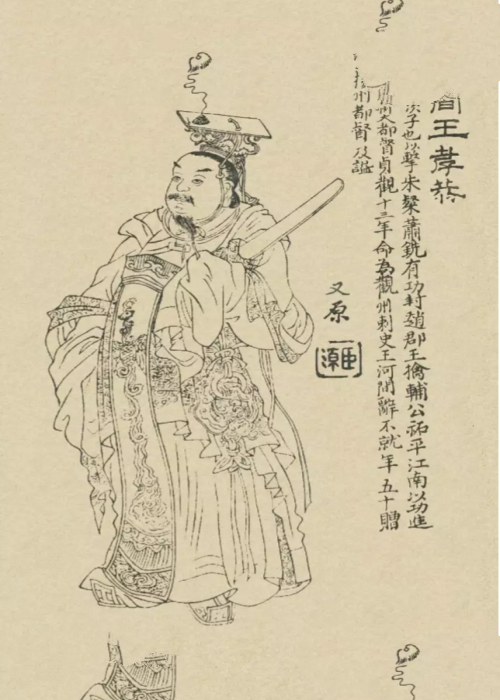 間王孝恭
次子也以擊朱粲蕭銑有功封趙郡王擒輔公祏平江南以功進
州大都督貞觀十三年命為觀州刺史王河間辭不就年五十贈
州都督及謚
又原
臣源